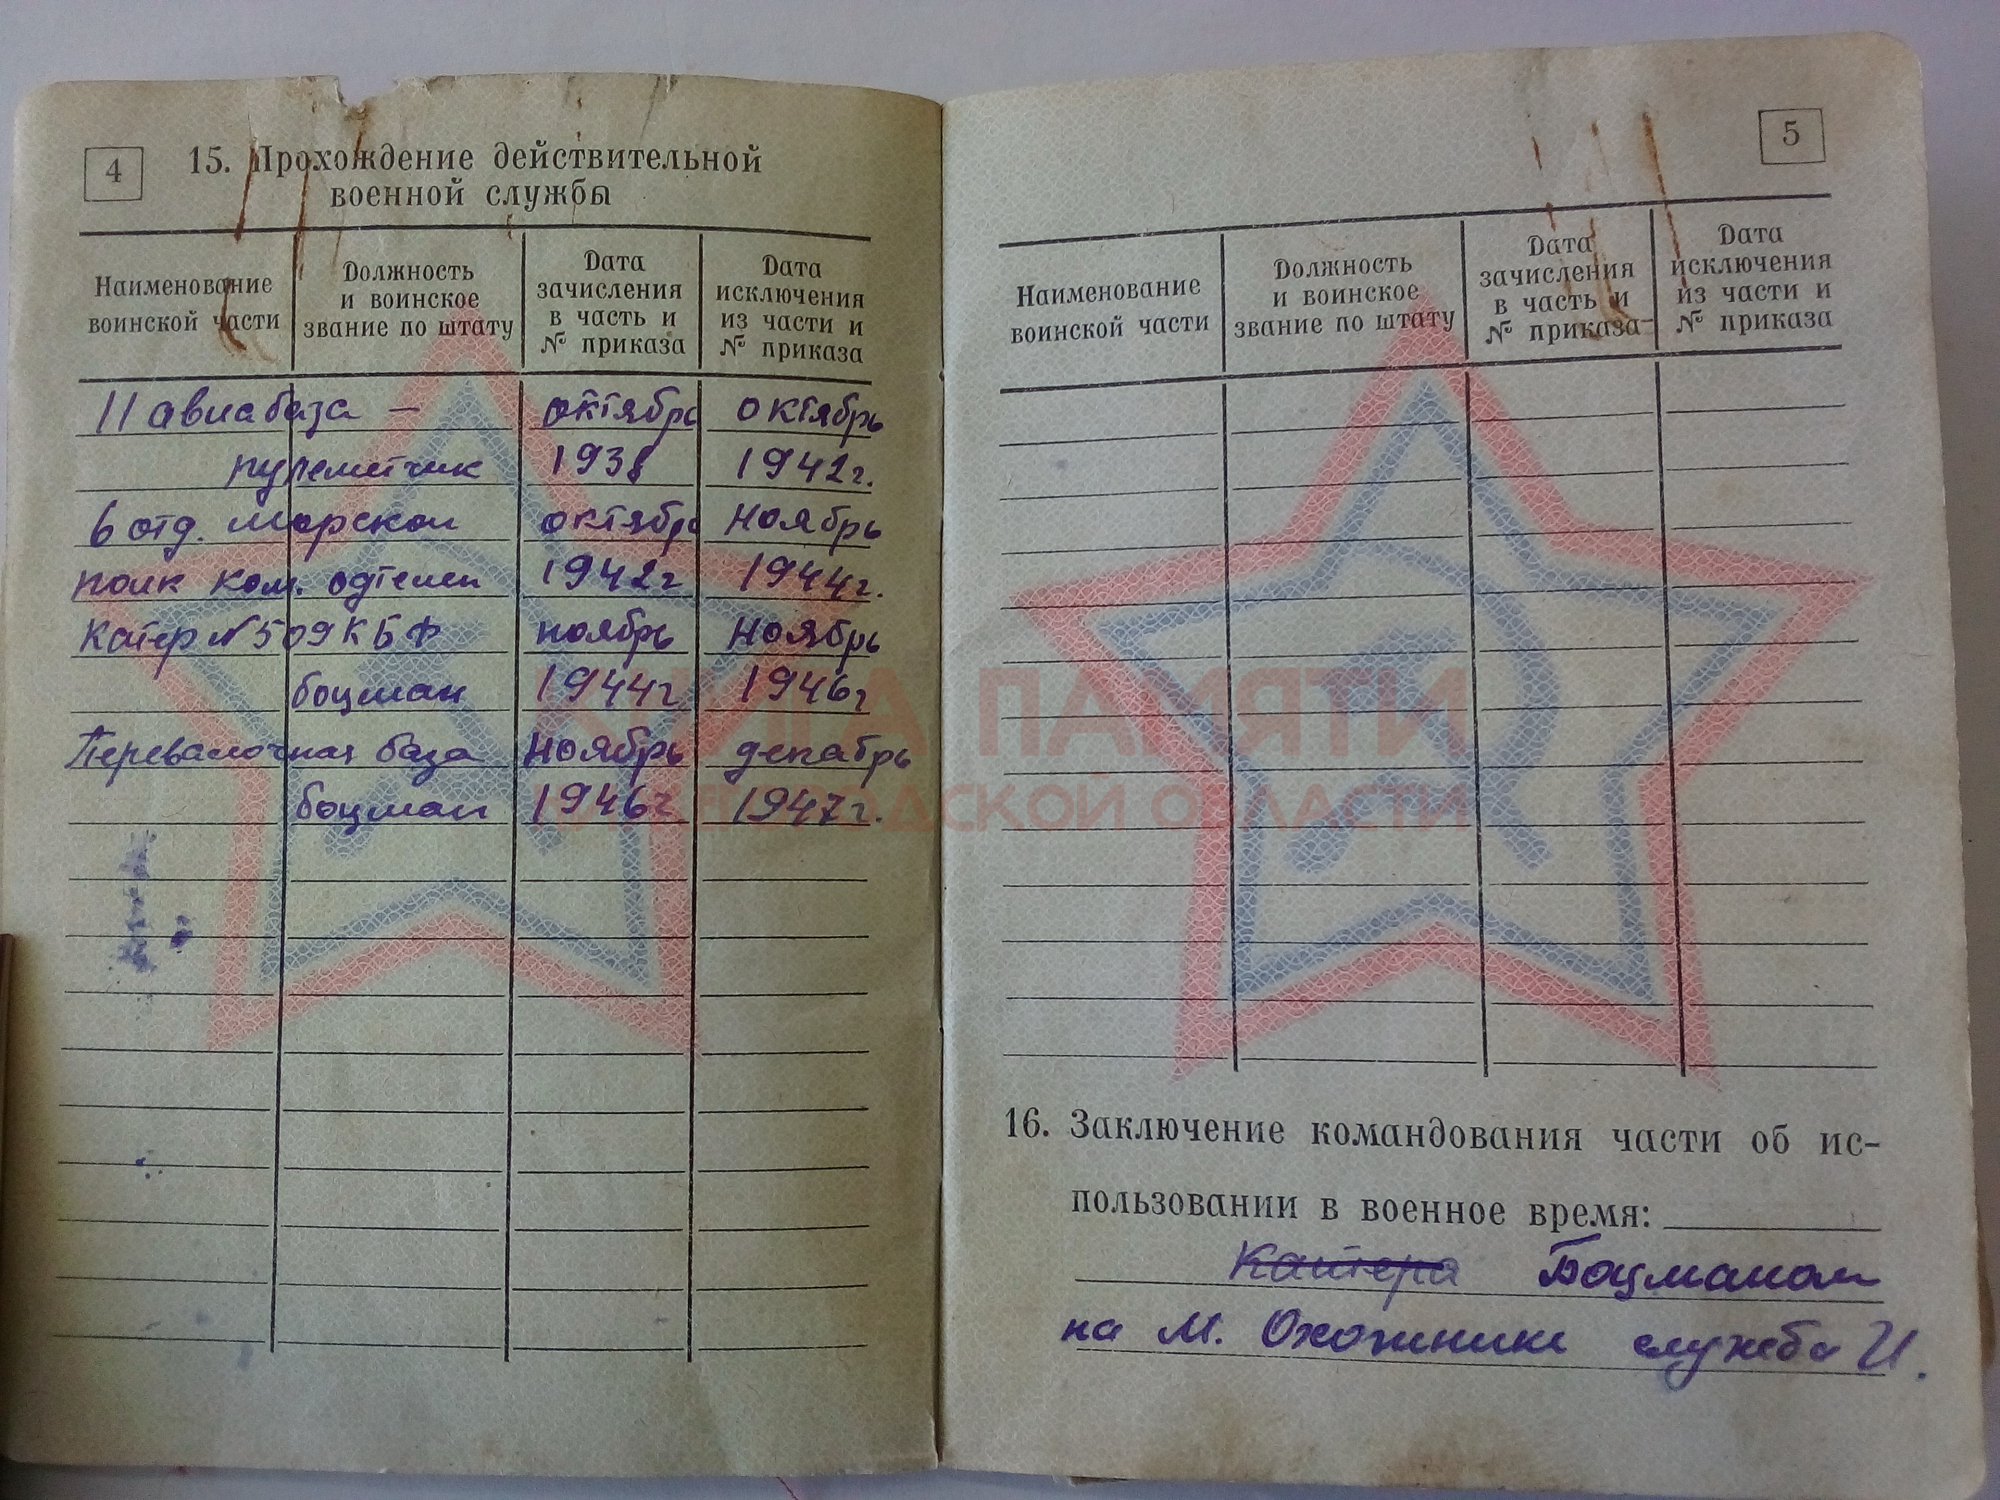 4
15. Прохождение действительной
военной службы
Наименование
воинской части
Должность
и воинское
звание по штату
Дата
зачисления
в часть и
№ приказа
Дата
исключения
из части и
№ приказа
11 авиабаза — октябрь октябрь
пулеметчик 1938 1942г.
6 отд. морской октябрь ноябрь
полк ком. 1942г 1944г.
Катер №509 КБФ ноябрь ноябрь
боцман 1944г 1946г
Перевалочная база ноябрь декабрь
боцман 1946г 1947г.
5
Наименование
воинской части
Должность
и воинское
звание по штату
Дата
зачисления
в часть и
№ приказа
Дата
исключения
из части и
№ приказа
КНИГА ПАМЯТИ
НИЖЕГОРОДСКОЙ ОБЛАСТИ
16. Заключение командования части об ис-
пользовании в военное время:
Катера Боцманом
на М. Охотнике служба И.